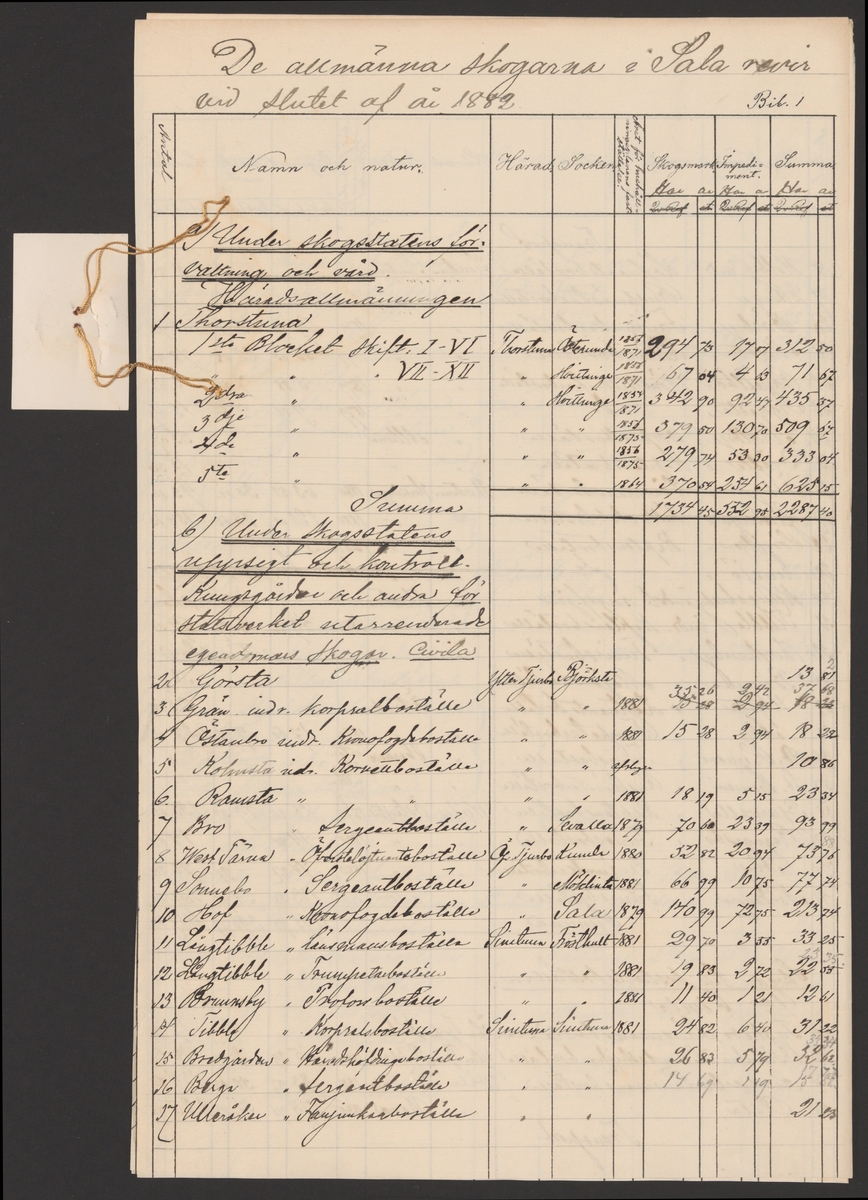 De allmänna skogarna i Sala revir
vid slutet af år 1882
Bil. 1
Antal Namn och natur. Härad. Socken Skogsmark Impedi-ment. Summa
Har ar Har a Har ar
a) Under skogsstatens för-
valtning och vård.
Häradsallmänningen
1 Thorstuna
1sta Blocket Skift. I-VI Thorstuna Österunda 1857/1871 294 73 17 77 312 50
" " " VII-XII " Härlinge 1871 67 04 4 63 71 67
2dra " " Härlinge 1871 342 90 92 47 435 37
3dje " " " 1875 379 50 130 70 509 67
4de " " " 1856/1875 279 74 53 30 333 04
5te " " " 1864 370 54 254 61 625 15
Summa 1734 45 552 95 2287 40
b) Under skogsstatens
uppsigt och kontroll.
Kungsgårdar och andra för
statsverket utarrenderade
egendomars skogar. Civila
2 Görsta Ytter Tjurbo Björksta 13 81
35 26 2 42 37 68
3 Grän indr. korpralboställe " " 1881 15 28 2 94 18 22
4 Östanbro indr. Kronofogdeboställe " " 1881 15 28 2 94 18 22
5 Kolmsta indr. Kornettboställe " " 10 86
6 Ramsta " " " " 1881 18 19 5 15 23 34
7 Bro " Sergeantboställe " Sevalla 1879 70 60 23 39 93 99
8 West Tärna " Öfverstelöjtnantsboställe Öf. Tjurbo Kumla 1880 52 82 20 94 73 76
9 Sonnebo " Sergeantboställe " Möklinta 1881 66 99 10 75 77 74
10 Hof " Kronofogdeboställe " Sala 1879 140 99 72 75 213 74
11 Långtibble " länsmansboställe Simtuna Frösthult 1881 29 70 3 55 33 25
12 Långtibble " Trumpetareboställe " " 1881 19 83 2 72 22 55
13 Brunnsby " Profossboställe " " 1881 11 40 1 21 12 61
14 Tibble " Korpralsboställe Simtuna Simtuna 1881 24 82 6 40 31 22
15 Bredgården " Häradshöfdingeboställe " " 26 83 5 79 32 62
16 Berga " Sergeantboställe " " 14 69 1 19
17 Ulleråker " Fanjunkareboställe " " 21 23